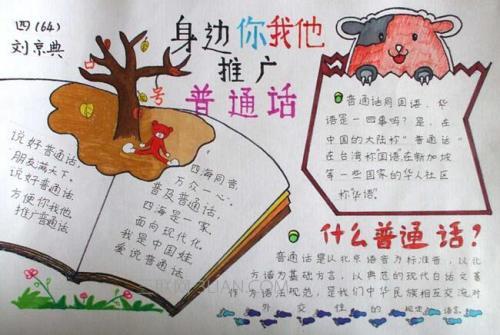 四(64)
刘京典
身边你我他
推广
普通话
号
说好普通话,
朋友满天下.
说好普通话.
方便你我他.
推广普通话
四海同音,
万众一心,
普及普通话,
四海是一家.
面向现代化,
我是中国娃.
爱说普通话
普通话同国语、华
语是一回事吗?是、在
中国的大陆称"普通话"
在台湾称国语.在新加坡
等一些国家的华人社区
称华语.
什么普通话?
普通话是以北京语音为标准音,以北
方话为基础方言,以典范的现代白话文著
作为语法规范,是我们中华民族相互交流对
外交往的规定语言.